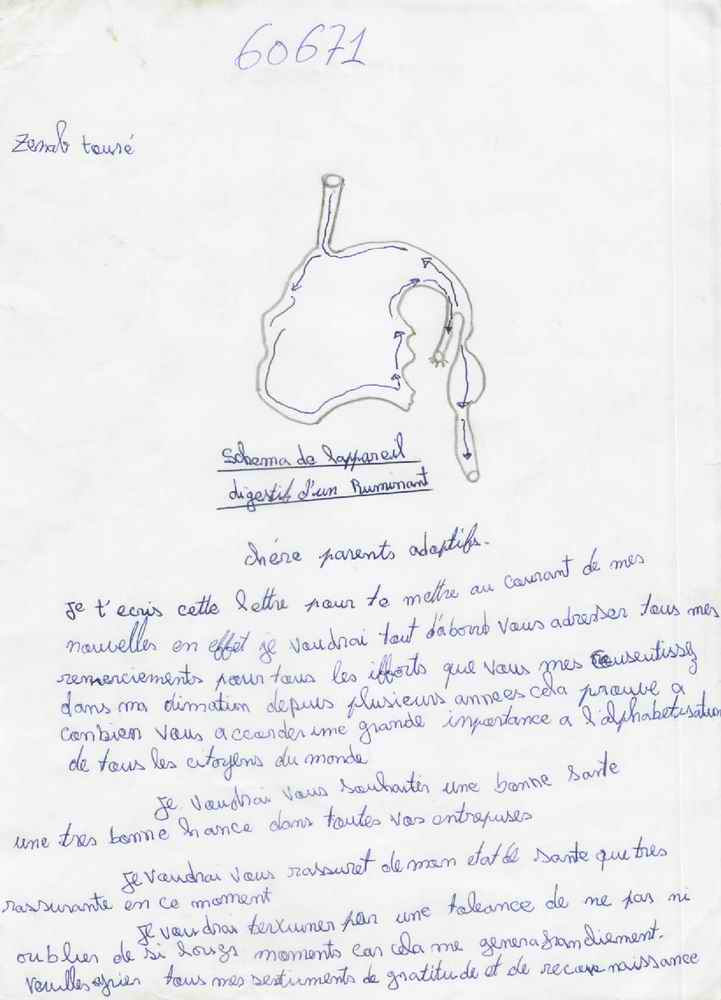 60671
Zenab touré
Schema de l'appareil
digestif d'un Ruminant
chére parents adoptifs.
Je t'ecris cette lettre pour te mettre au courant de mes
nouvelles en effet je voudrai tout d'abord vous adresser tous mes
remerciements pour tous les efforts que vous mes
dans ma depuis plusieurs années cela prouve a
conbien vous accorder une grande importance a l'alphabetisation
de tous les citoyens du monde
Je voudrai vous souhaiter une bonne sante
une tres bonne chance dans toutes vos entreprises
Je voudrai vous rassuret de mon etat de sante que tres
rassurante en ce moment
Je voudrai terminer par une de ne pas ni
oublier de si longs moments car cela me genera grandiement.
tous mes sentiments de gratitude et de reconnaissance